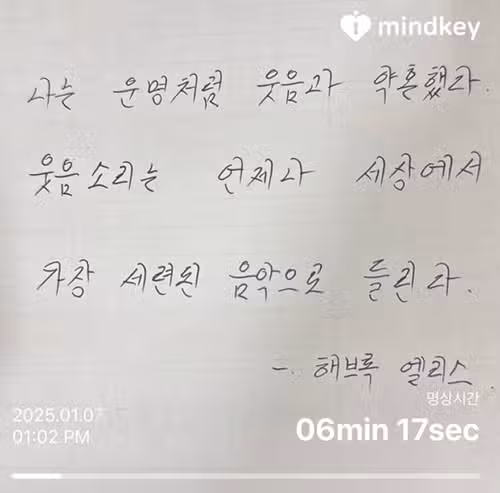 mindkey
나는 운명처럼 웃음과 약혼했다.
웃음소리는 언제나 세상에서
가장 세련된 음악으로 들린다.
- 해브록 엘리스.
명상시간
2025.01.07
06min 17sec
01:02 PM